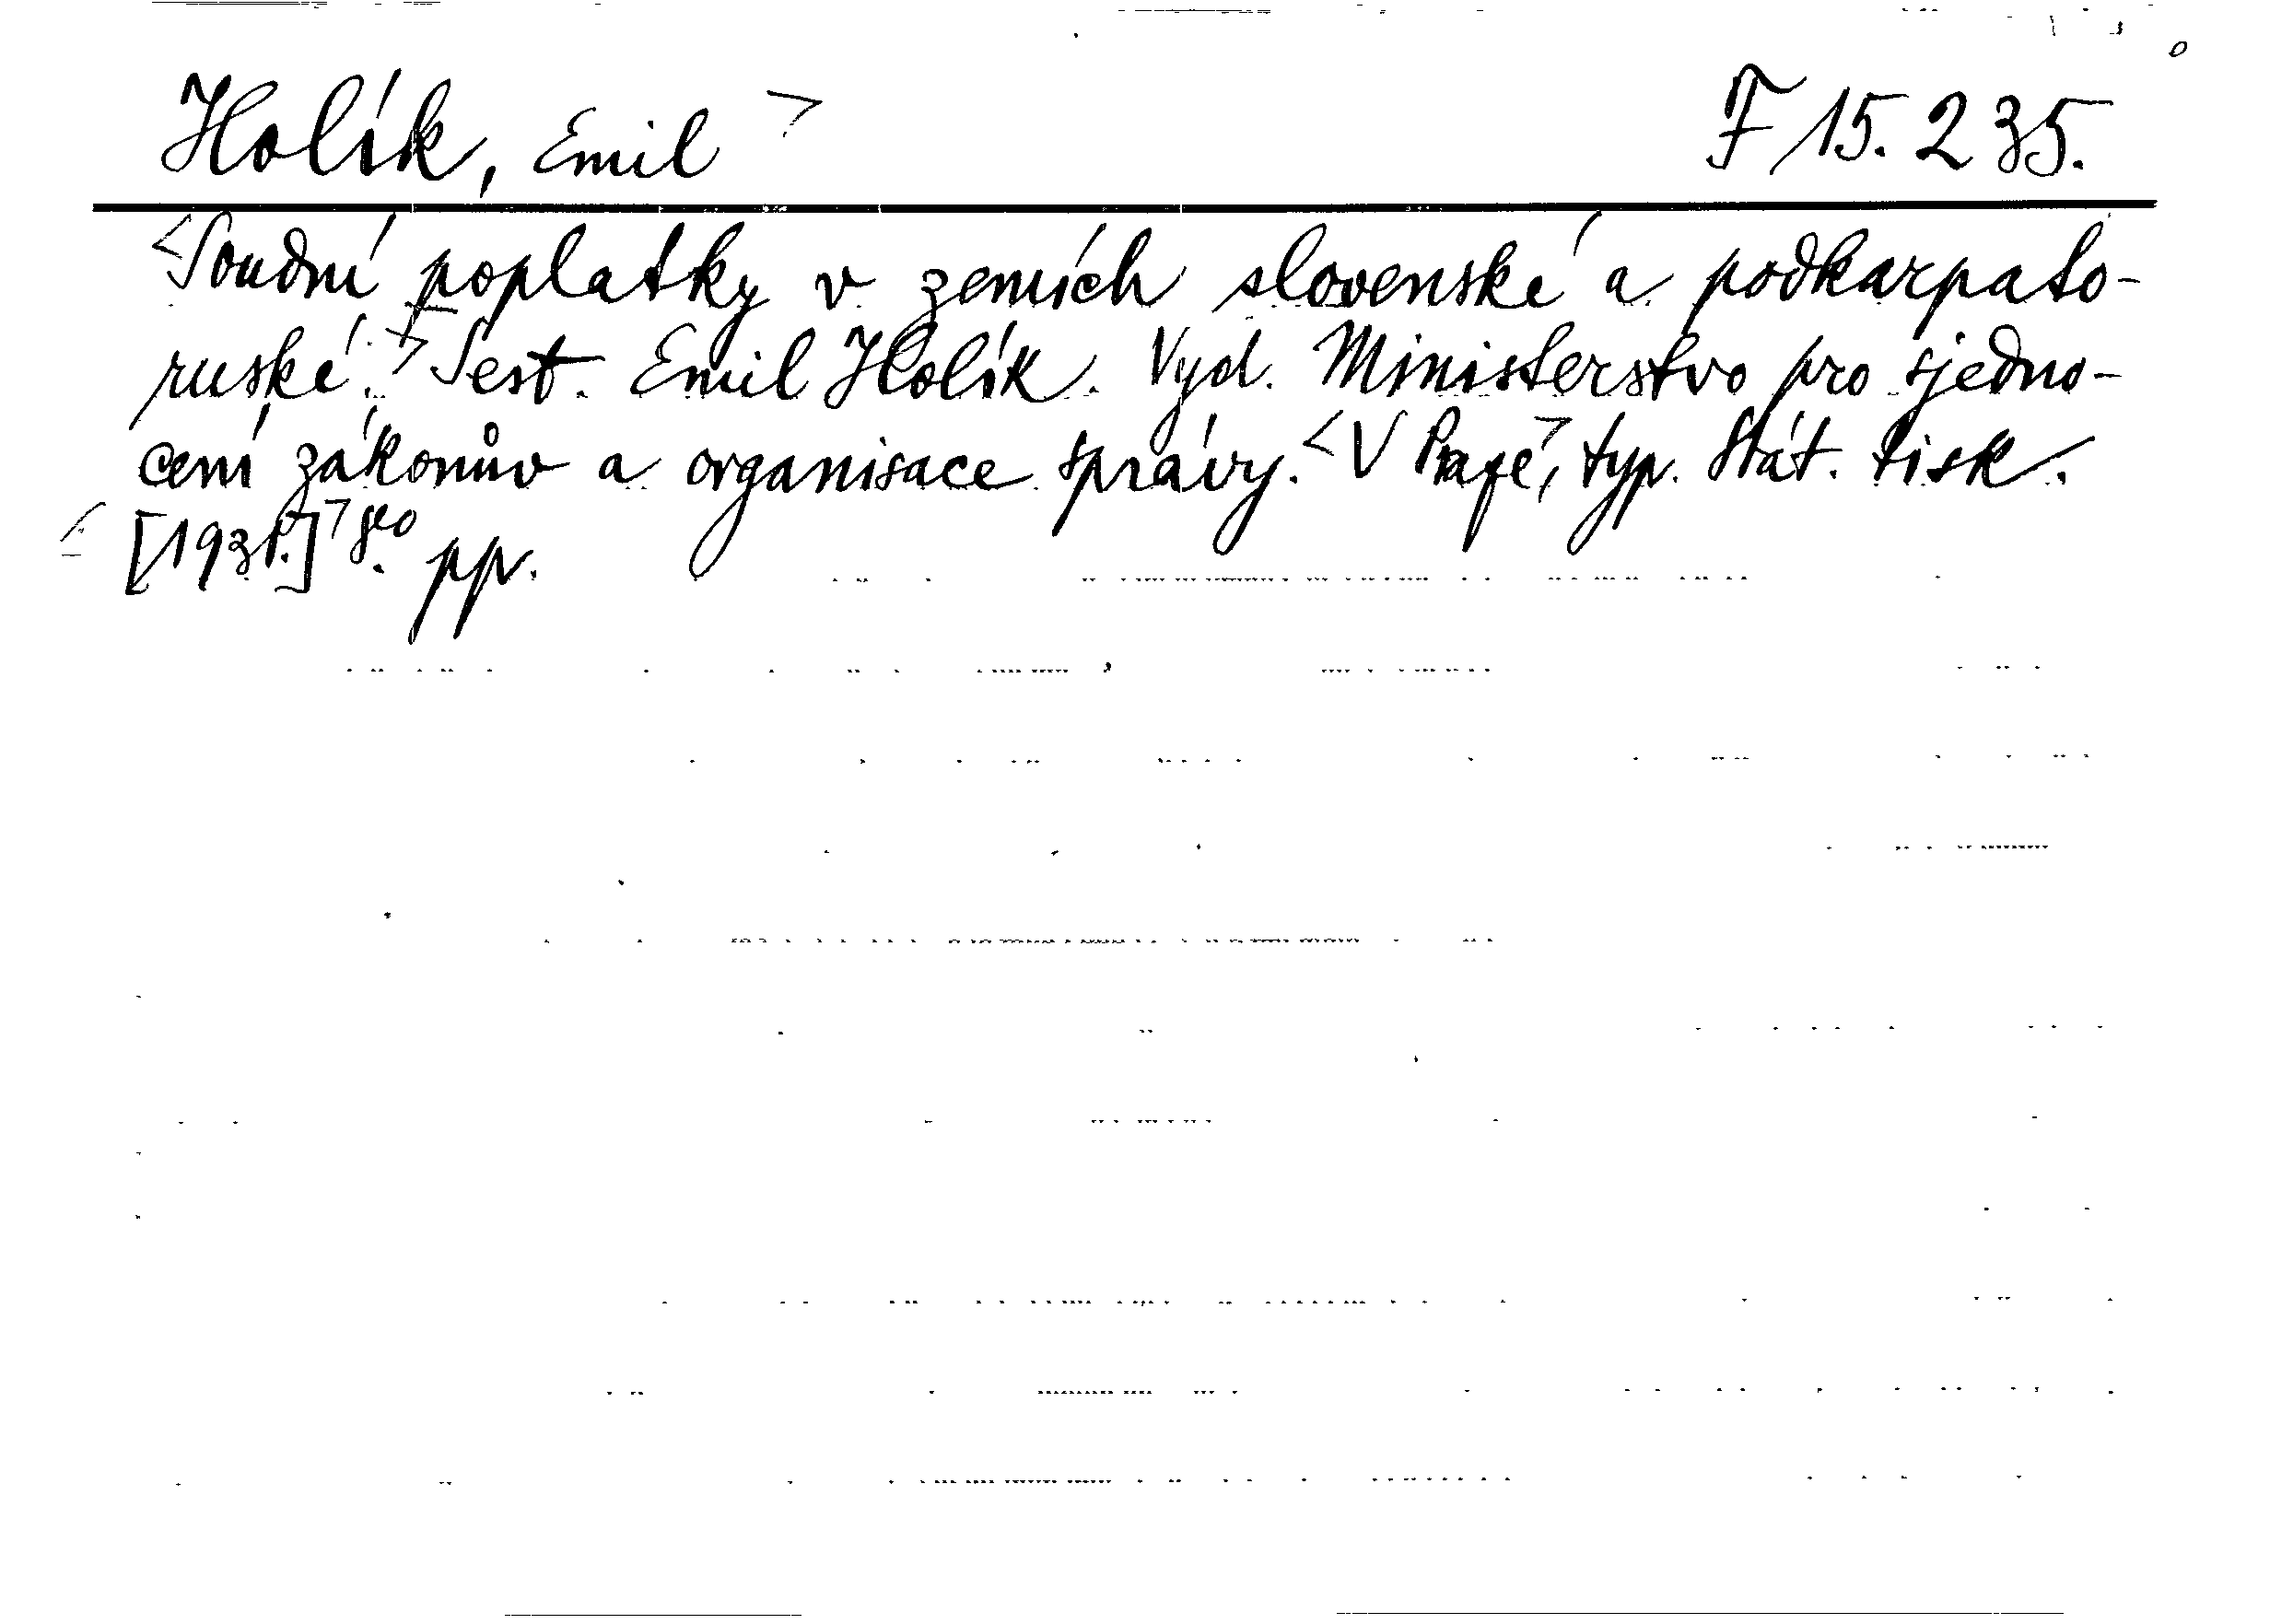 Holík, Emil > F 15.235.
<Soudní poplatky v zemích slovenské a podkarpato-
ruské.> Sest. Emil Holík. Vyd. Ministerstvo pro sjedno-
cení zákonův a organisace správy. <V Praze>, typ. Stát. tisk.
<[1931.]> 8o. pp.